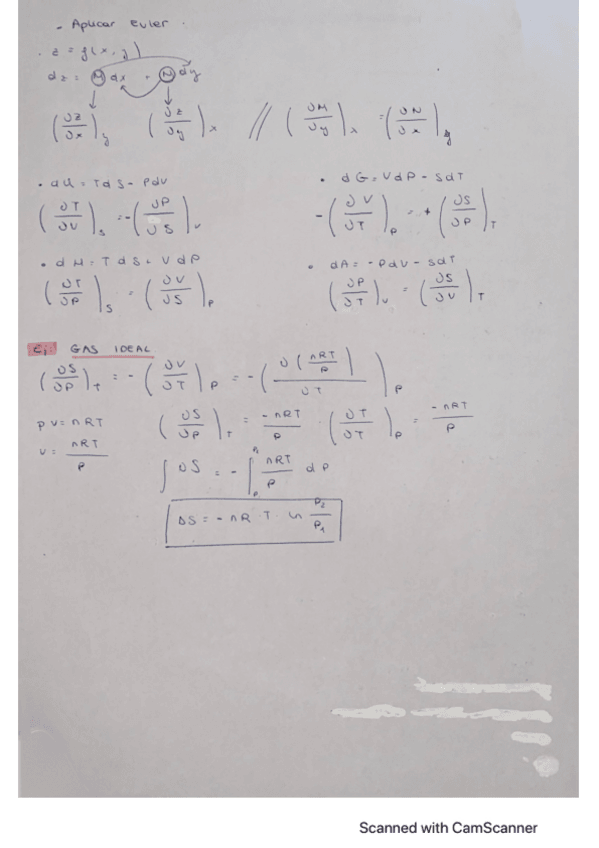 - Aplicar Euler.
. z = f(x, y)
dz = M dx + N dy
(∂z/∂x)_y (∂z/∂y)_x // (∂M/∂y)_x = (∂N/∂x)_y
• dU = TdS - PdV
(∂T/∂V)_S = -(∂P/∂S)_V
• dH = TdS + VdP
(∂T/∂P)_S = (∂V/∂S)_P
• dG = VdP - SdT
-(∂V/∂T)_P = +(∂S/∂P)_T
• dA = -PdV - SdT
(∂P/∂T)_V = (∂S/∂V)_T
Ej GAS IDEAL
(∂S/∂P)_T = -(∂V/∂T)_P = -(∂(nRT/P)/∂T)_P
PV = nRT
V = nRT/P
(∂S/∂P)_T = -nRT/P (∂T/∂T)_P = -nRT/P
∫ ∂S = -∫ nRT/P dP
ΔS = -nR · T · ln P2/P1
Scanned with CamScanner